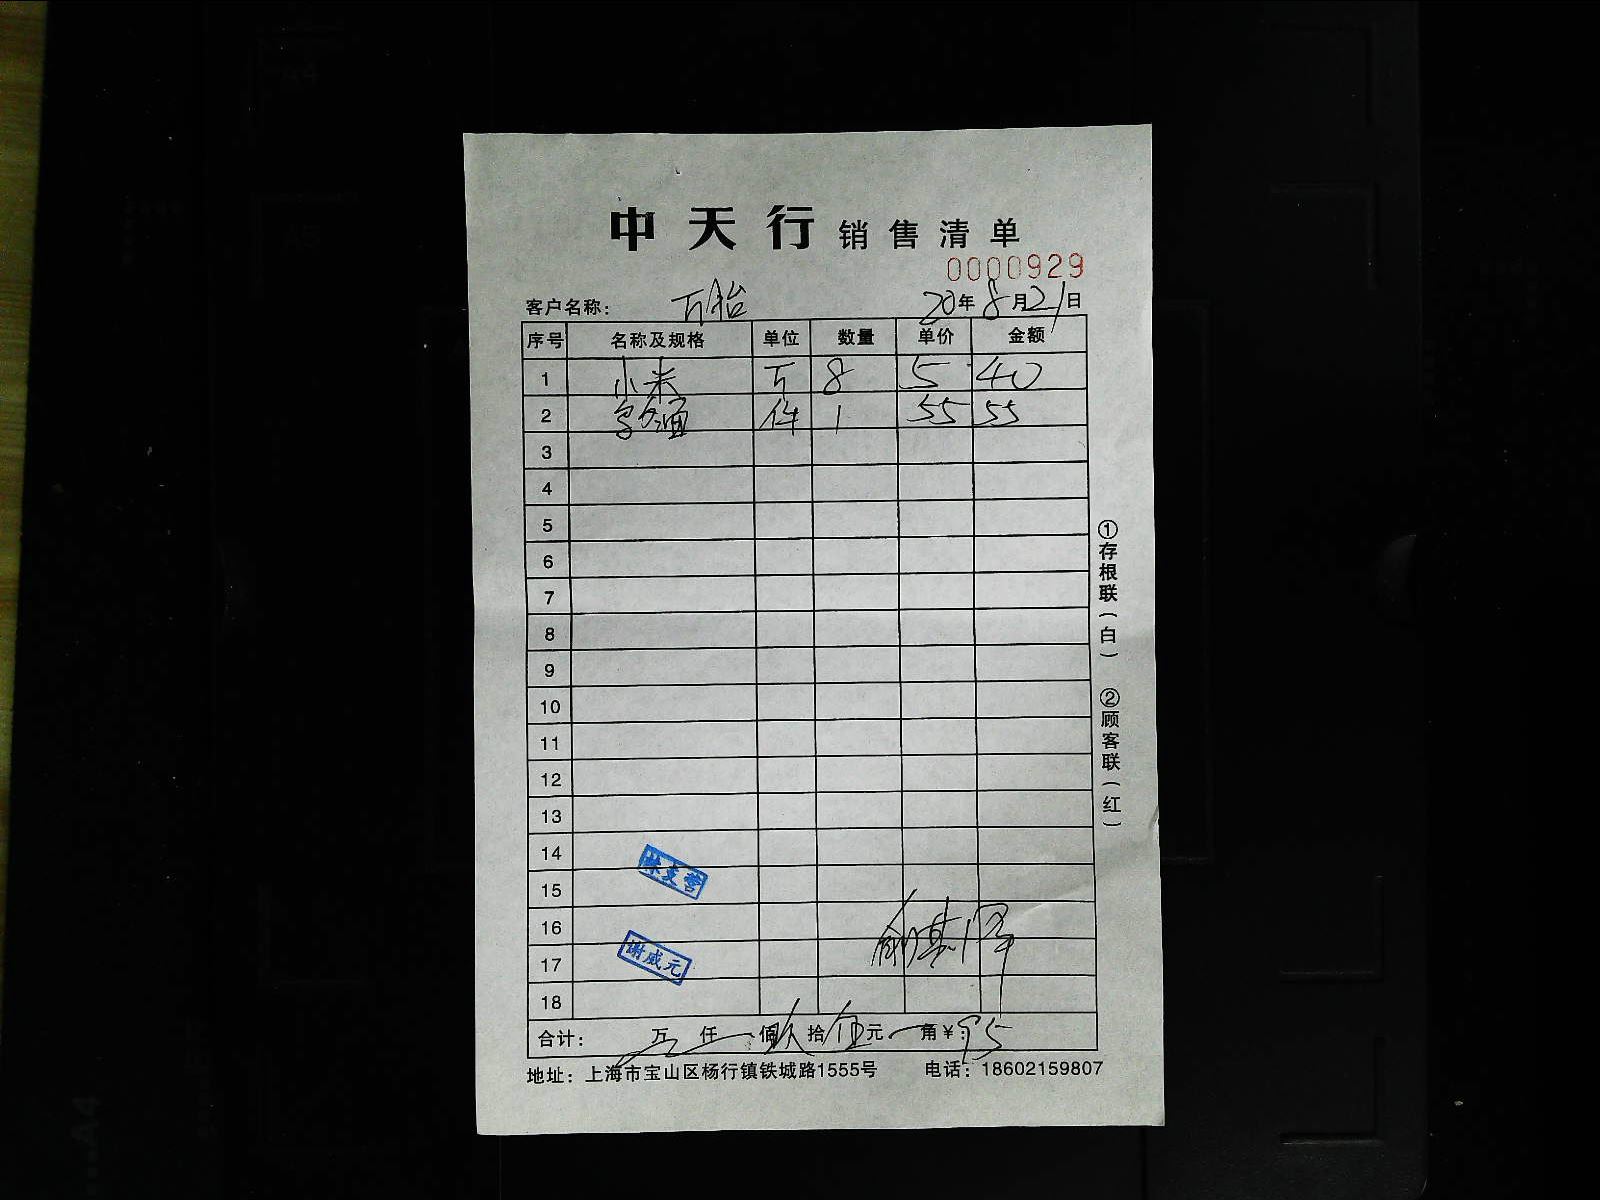 中天行 销售清单
0000929
客户名称: 万怡 20年8月21日
序号 名称及规格 单位 数量 单价 金额
1 小米 斤 8 5 40
2 件 1 55 55
3
4
5
6
7
8
9
10
11
12
13
14
15
16
17
18
谢威元
合计: 万 仟 佰 玖 拾 伍 元 角 ¥: 95
地址: 上海市宝山区杨行镇铁城路1555号 电话: 18602159807
①存根联(白) ②顾客联(红)
A4
A5
A4